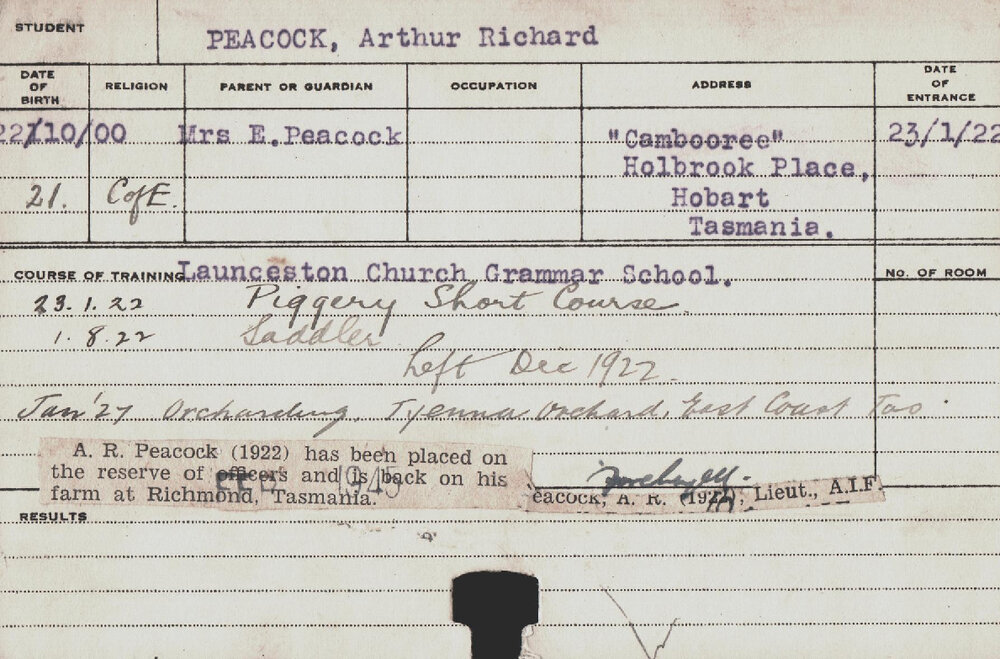 STUDENT PEACOCK, Arthur Richard
DATE OF BIRTH RELIGION PARENT OR GUARDIAN OCCUPATION ADDRESS DATE OF ENTRANCE
22/10/00 Mrs E.Peacock "Cambooree" 23/1/22
Holbrook Place,
21. CofE. Hobart
Tasmania.
COURSE OF TRAINING Launceston Church Grammar School. No. OF ROOM
23.1.22 Piggery Short Course.
1.8.22 Saddler
Left Dec 1922.
Jan '27 Orcharding, Tyenna Orchard, East Coast Tas.
A. R. Peacock (1922) has been placed on
the reserve of officers and is back on his
farm at Richmond, Tasmania.
FEB 1945
eacock, A. R. (1922), Lieut., A.I.F
RESULTS